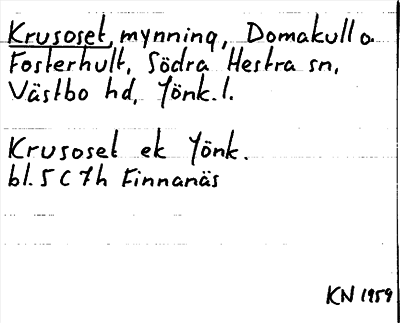 Krusoset, mynning, Domakull o.
Fosterhult, Södra Hestra sn,
Västbo hd, Jönk. l.
Krusoset ek Jönk.
bl. 5 C 7h Finnanäs
KN 1959